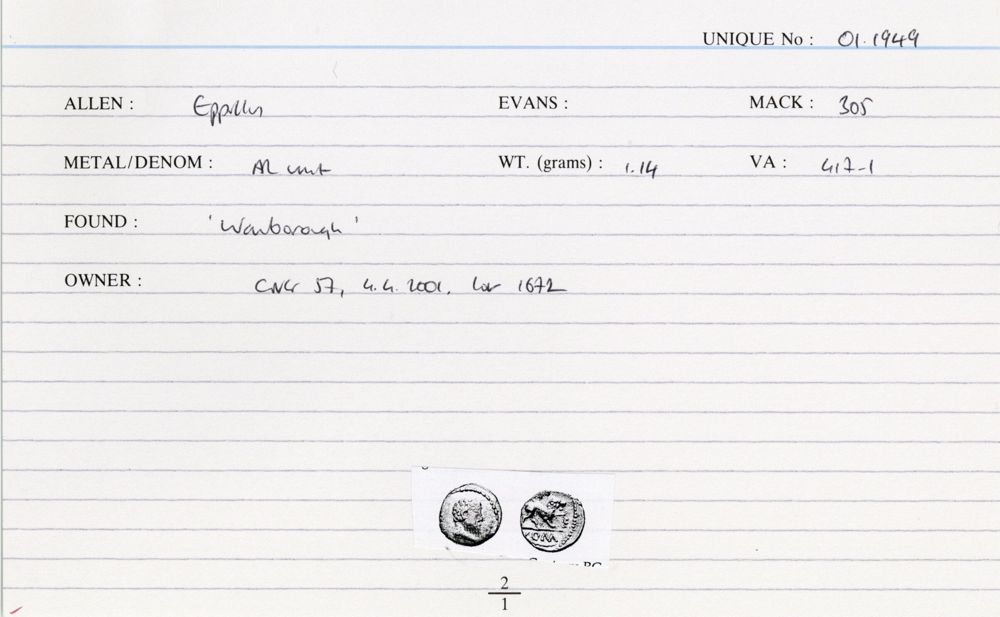 UNIQUE No : 01.1949
ALLEN : Eppillus EVANS : MACK : 305
METAL/DENOM : AR unit WT. (grams) : 1.14 VA : 417-1
FOUND : 'Wanborough'
OWNER : CNG 57, 4.4.2001. Lot 1672
2
1